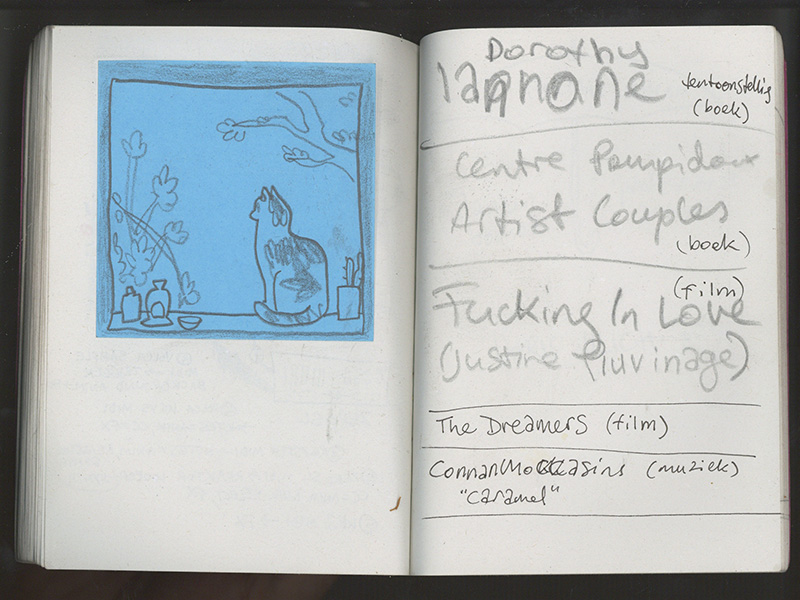 Dorothy
Iannone
tentoonstelling
(boek)
Centre Pompidou
Artist Couples
(boek)
(film)
Fucking In Love
(Justine Pluvinage)
The Dreamers (film)
Connan Mockasins (muziek)
"Caramel"